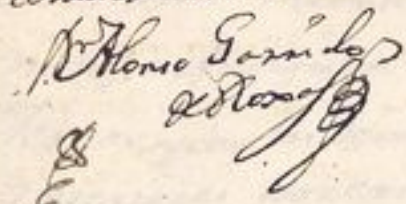 Dr Alonso Garrido
de Roxas